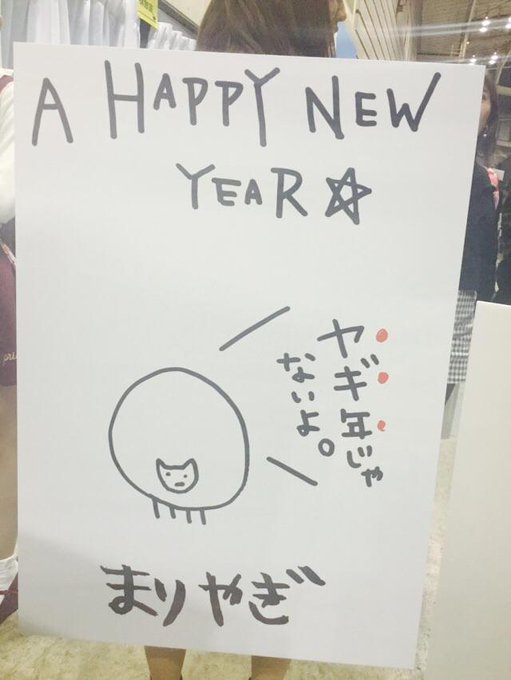 A HAPPY NEW
YEAR☆
ヤギ年じゃ
ないよ。
まりやぎ